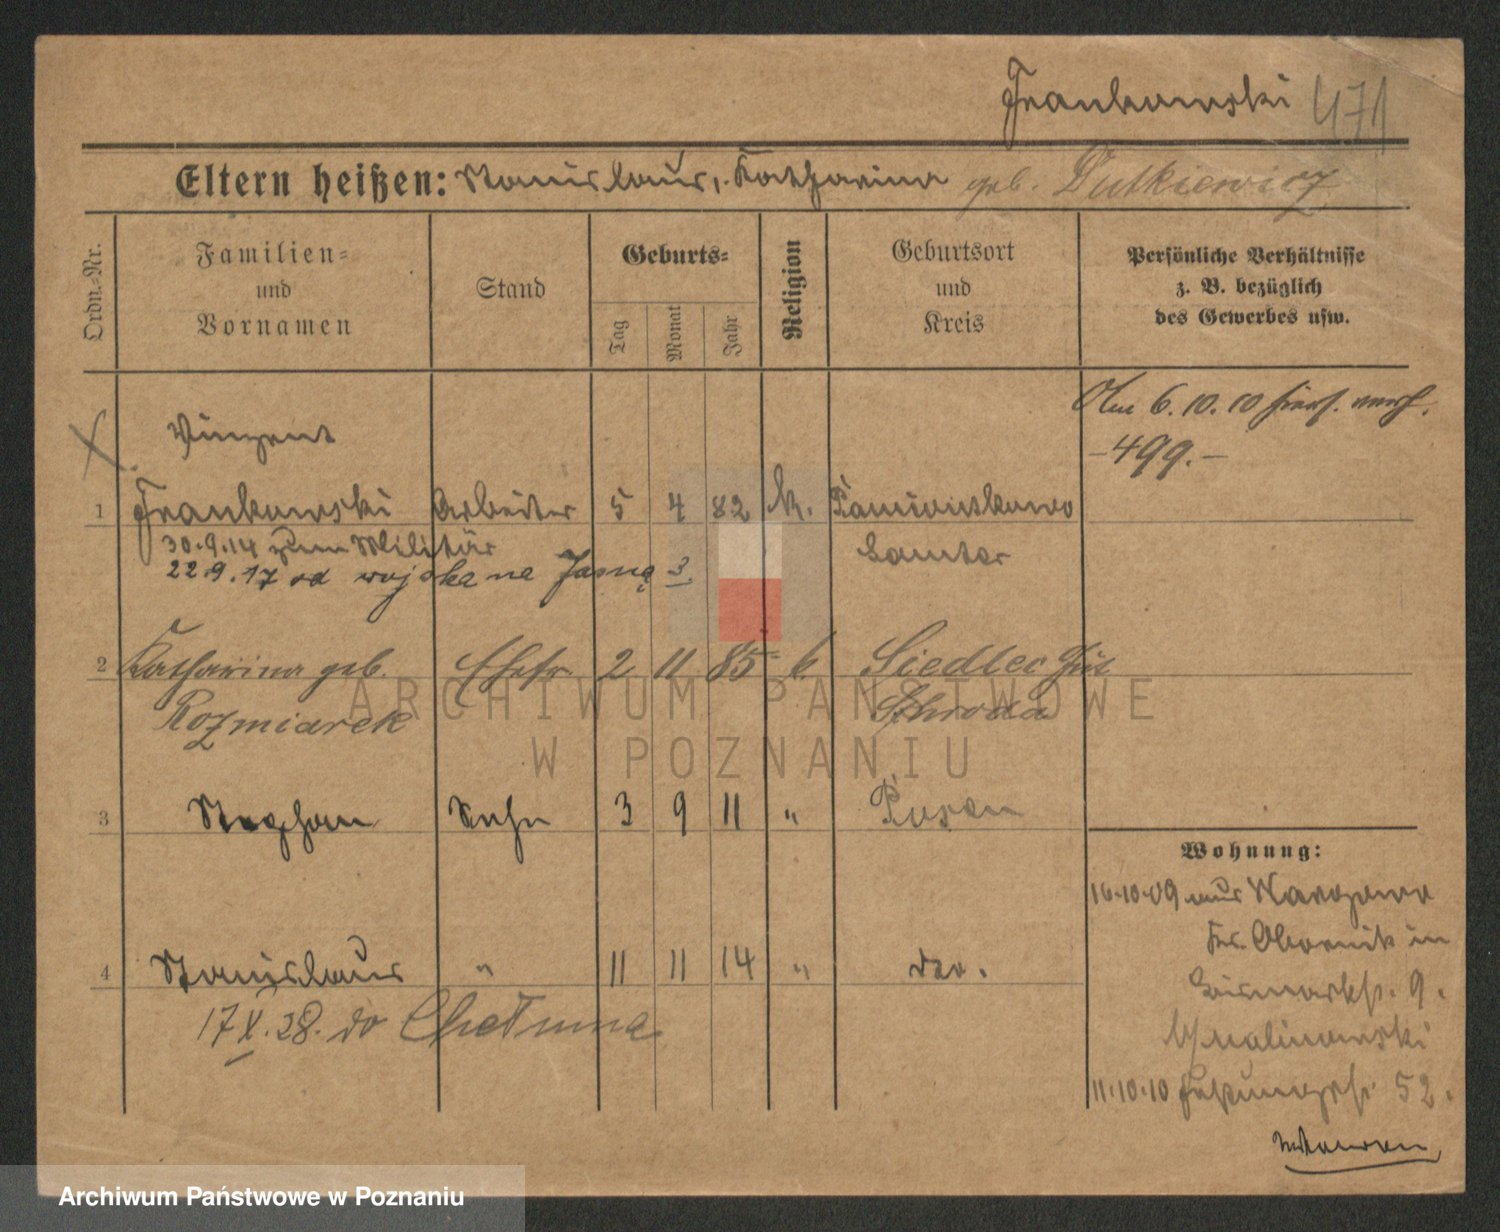 Frankowski 471
Eltern heißen: Stanislaus, Katharina geb. Dutkiewicz
Ordn.-Nr.
Familien-
und
Vornamen
Stand
Geburts-
Tag
Monat
Jahr
Religion
Geburtsort
und
Kreis
Persönliche Verhältnisse
z. B. bezüglich
des Gewerbes usw.
6.10.10
-499.-
Vinzent
1 Frankowski Arbeiter 5 4 82 k. Pamiontkowo
30.9.14 zum Militär Samter
22.9.17 od wojska na Jasną 3.
2 Katharina geb. Ehefr. 2 11 85 k. Siedlec
Rozmiarek Schroda
3 Stephan Sohn 3 9 11 " Posen
4 Stanislaus " 11 11 14 " do.
17 X. 28. do Chełmna
Wohnung:
16.10.09 aus
Kr. Obornik in
Bismarkstr. 9.
b/Malinowski
11.10.10 52.
ARCHIWUM PAŃSTWOWE
W POZNANIU
Archiwum Państwowe w Poznaniu